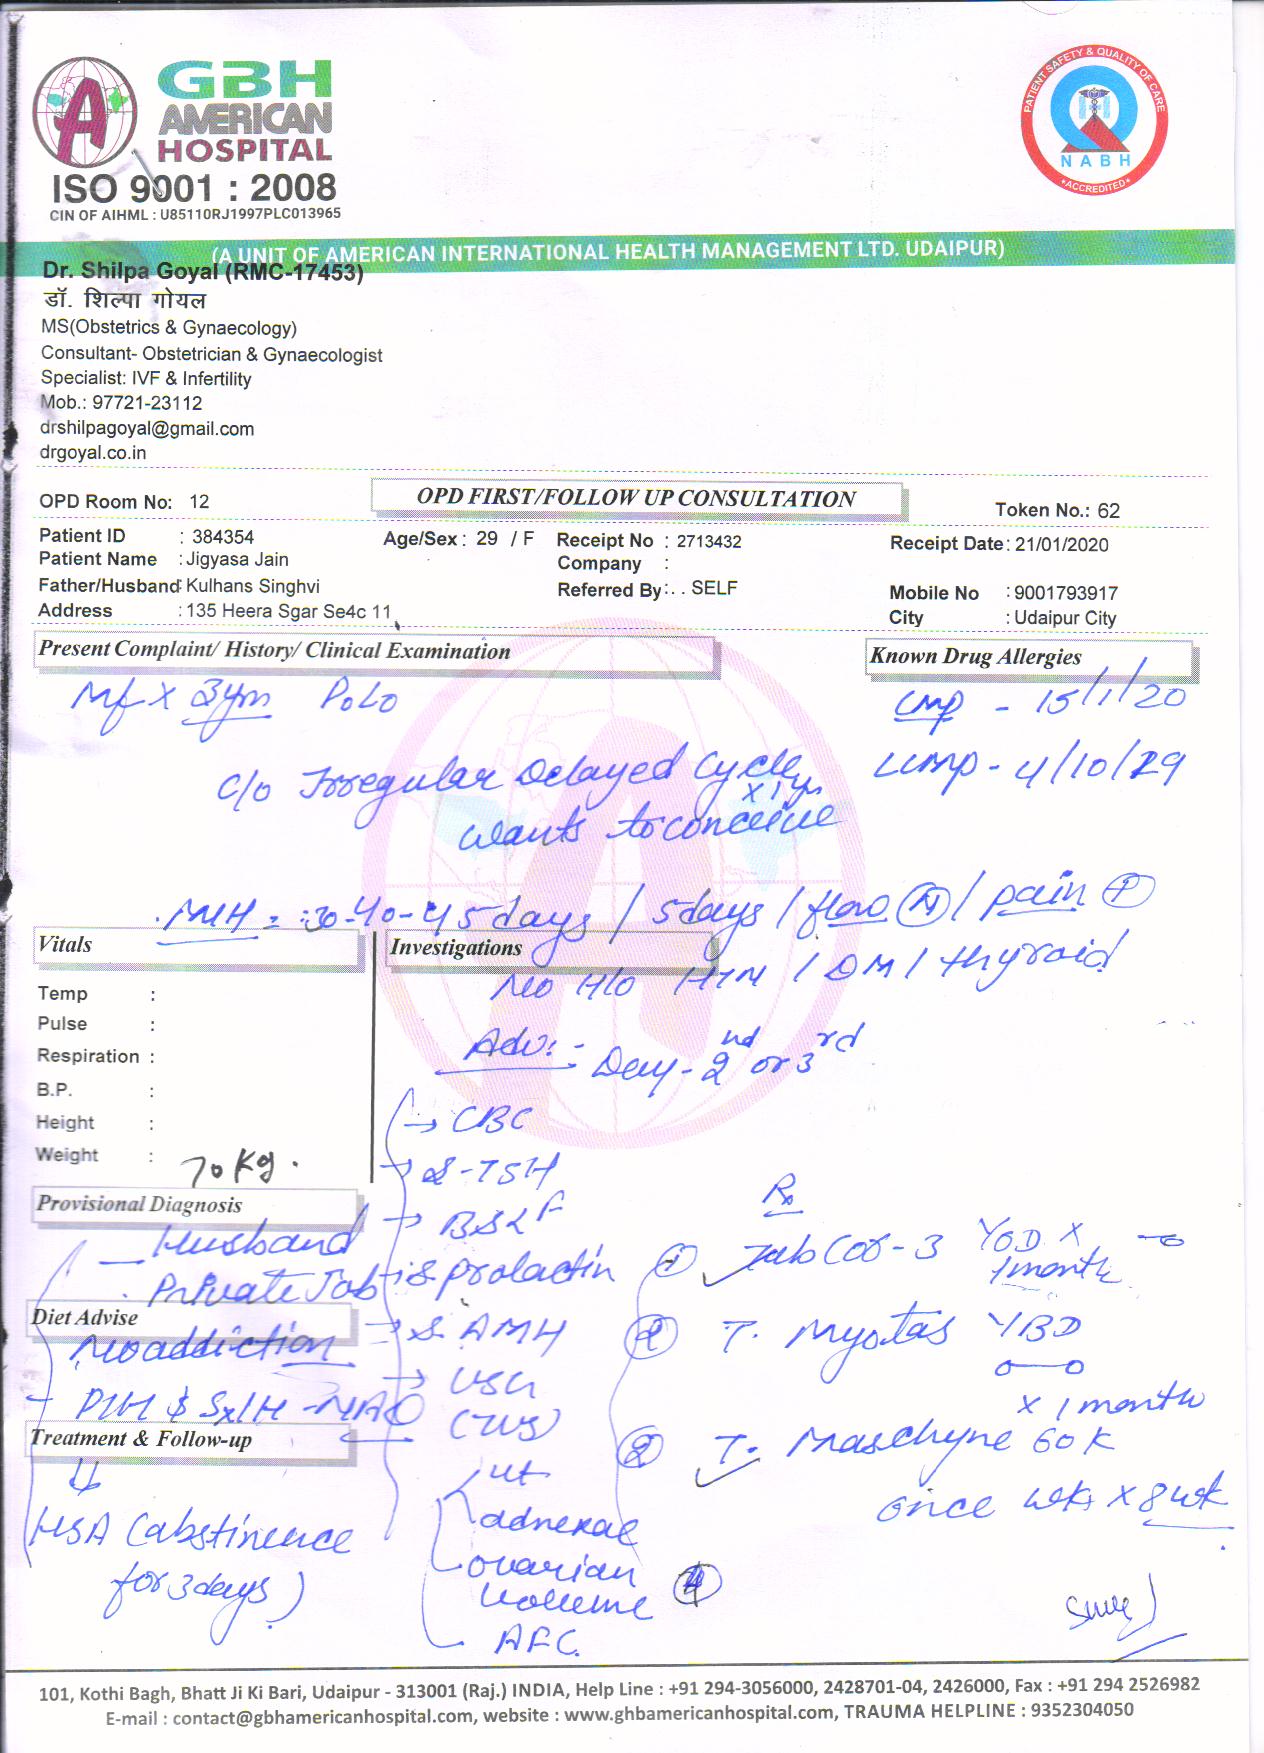 GBH
AMERICAN
HOSPITAL
ISO 9001 : 2008
CIN OF AIHML : U85110RJ1997PLC013965
PATIENT SAFETY & QUALITY OF CARE
NABH
ACCREDITED
(A UNIT OF AMERICAN INTERNATIONAL HEALTH MANAGEMENT LTD. UDAIPUR)
Dr. Shilpa Goyal (RMC-17453)
डॉ. शिल्पा गोयल
MS(Obstetrics & Gynaecology)
Consultant- Obstetrician & Gynaecologist
Specialist: IVF & Infertility
Mob.: 97721-23112
drshilpagoyal@gmail.com
drgoyal.co.in
OPD Room No: 12 OPD FIRST/FOLLOW UP CONSULTATION Token No.: 62
Patient ID : 384354 Age/Sex : 29 / F Receipt No : 2713432 Receipt Date : 21/01/2020
Patient Name : Jigyasa Jain Company :
Father/Husband : Kulhans Singhvi Referred By : . . SELF Mobile No : 9001793917
Address : 135 Heera Sgar Se4c 11 City : Udaipur City
Present Complaint/ History/ Clinical Examination Known Drug Allergies
P0L0 LMP - 15/1/20
C/o Irregular Delayed Cycle LLMP - 4/10/29
wants to conceive
MH = 30-40-45 days / 5days / flow (N) / pain
Vitals Investigations
No H/o HTN / DM / thyroid
Temp :
Pulse :
Respiration :
B.P. :
Height :
Weight : 70 Kg.
Adv:- Day-2nd or 3rd
→ CBC
→ S-TSH
→ BSL F
S prolactin
→ S. AMH
→ USG
(TVS)
ut
adnexae
ovarian
volume
AFC.
Provisional Diagnosis
Husband
Private Job
Diet Advise
No addiction
Treatment & Follow-up
HSA (abstinence
for 3 days)
Rx
① Tab 3 OD x
1 month
T. BD
x 1 month
T. 60K
once wk x 8 wk
④
101, Kothi Bagh, Bhatt Ji Ki Bari, Udaipur - 313001 (Raj.) INDIA, Help Line : +91 294-3056000, 2428701-04, 2426000, Fax : +91 294 2526982
E-mail : contact@gbhamericanhospital.com, website : www.ghbamericanhospital.com, TRAUMA HELPLINE : 9352304050